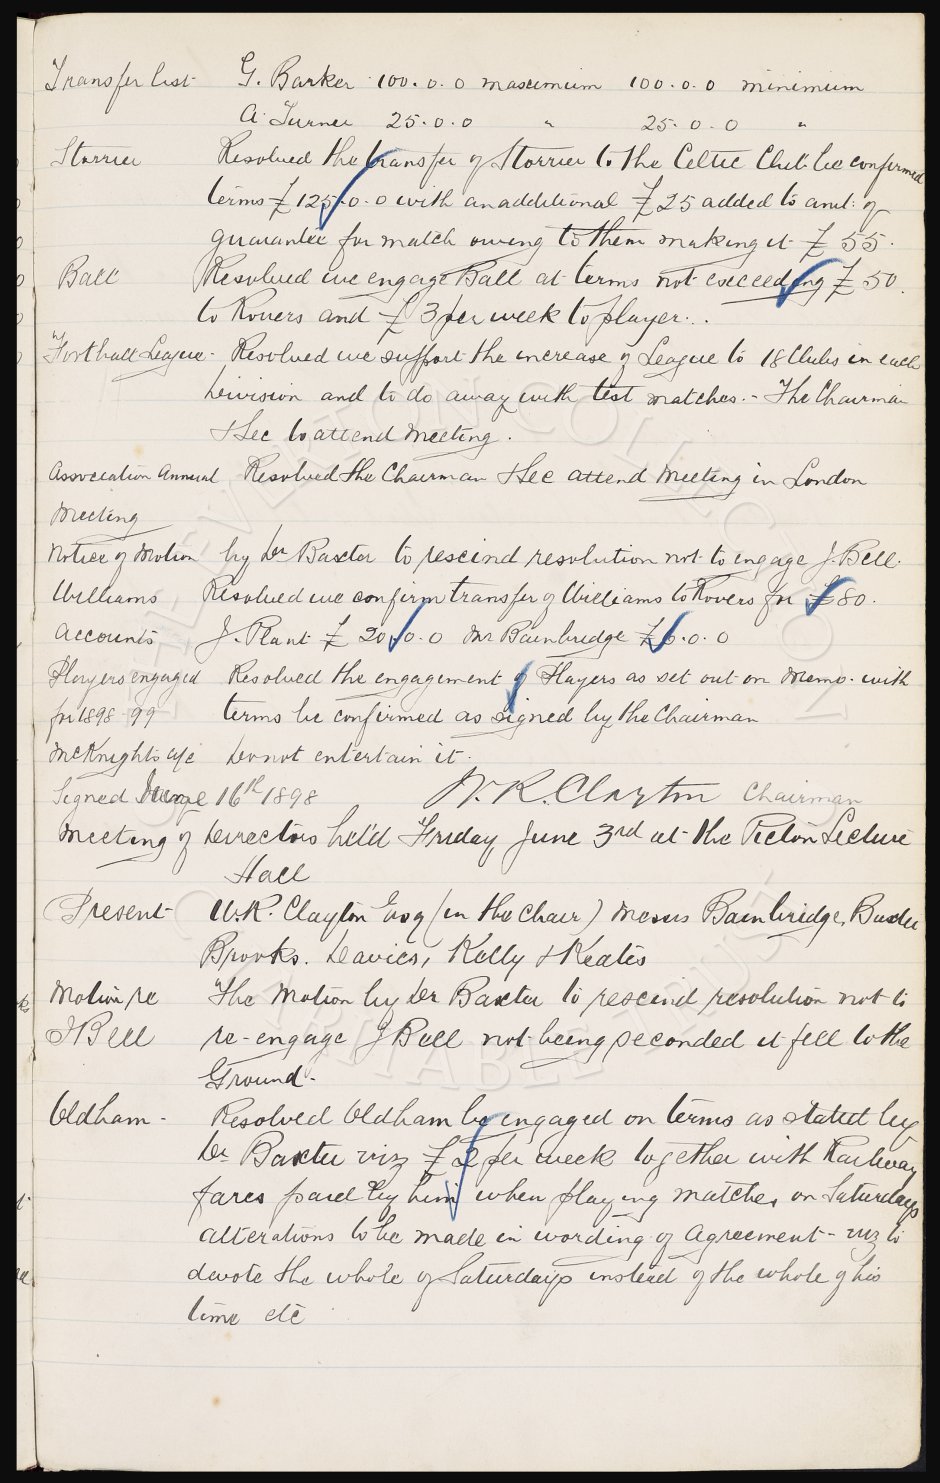 Transfer list G. Barker 100.0.0 maximum 100.0.0 minimum
A. Turner 25.0.0 " 25.0.0 "
Storrier Resolved the transfer of Storrier to the Celtic Club be confirmed
terms £125.0.0 with an additional £25 added to amt. of
guarantee for match owing to them making it £55.
Ball Resolved we engage Ball at terms not exceeding £50.
to Rovers and £3 per week to player.
Football League. Resolved we support the increase of League to 18 Clubs in each
Division and to do away with test matches. - The Chairman
& Sec to attend Meeting.
Association Annual Resolved the Chairman & Sec attend Meeting in London
Meeting
Notice of Motion by Dr Baxter to rescind resolution not to engage J. Bell.
Williams Resolved we confirm transfer of Williams to Rovers for £80.
Accounts J. Plant £20.0.0 Mr Bainbridge £6.0.0
Players engaged Resolved the engagement of Players as set out on Memo. with
for 1898-99 terms be confirmed as signed by the Chairman
McKnights a/c Do not entertain it.
Signed June 16th 1898 W. R. Clayton Chairman
Meeting of Directors held Friday June 3rd at the Picton Lecture
Hall
Present W.R. Clayton Esq (in the Chair) Messrs Bainbridge, Baxter
Brooks. Davies, Kelly & Keates
Motion re The Motion by Dr Baxter to rescind resolution not to
J Bell re-engage J Bell not being seconded it fell to the
Ground.
Oldham - Resolved Oldham be engaged on terms as stated by
Dr Baxter viz £2 per week together with Railway
fares paid by him when playing matches on Saturdays
alterations to be made in wording of Agreement - viz to
devote the whole of Saturdays instead of the whole of his
time etc
THE EVERTON COLLECTION
CHARITABLE TRUST